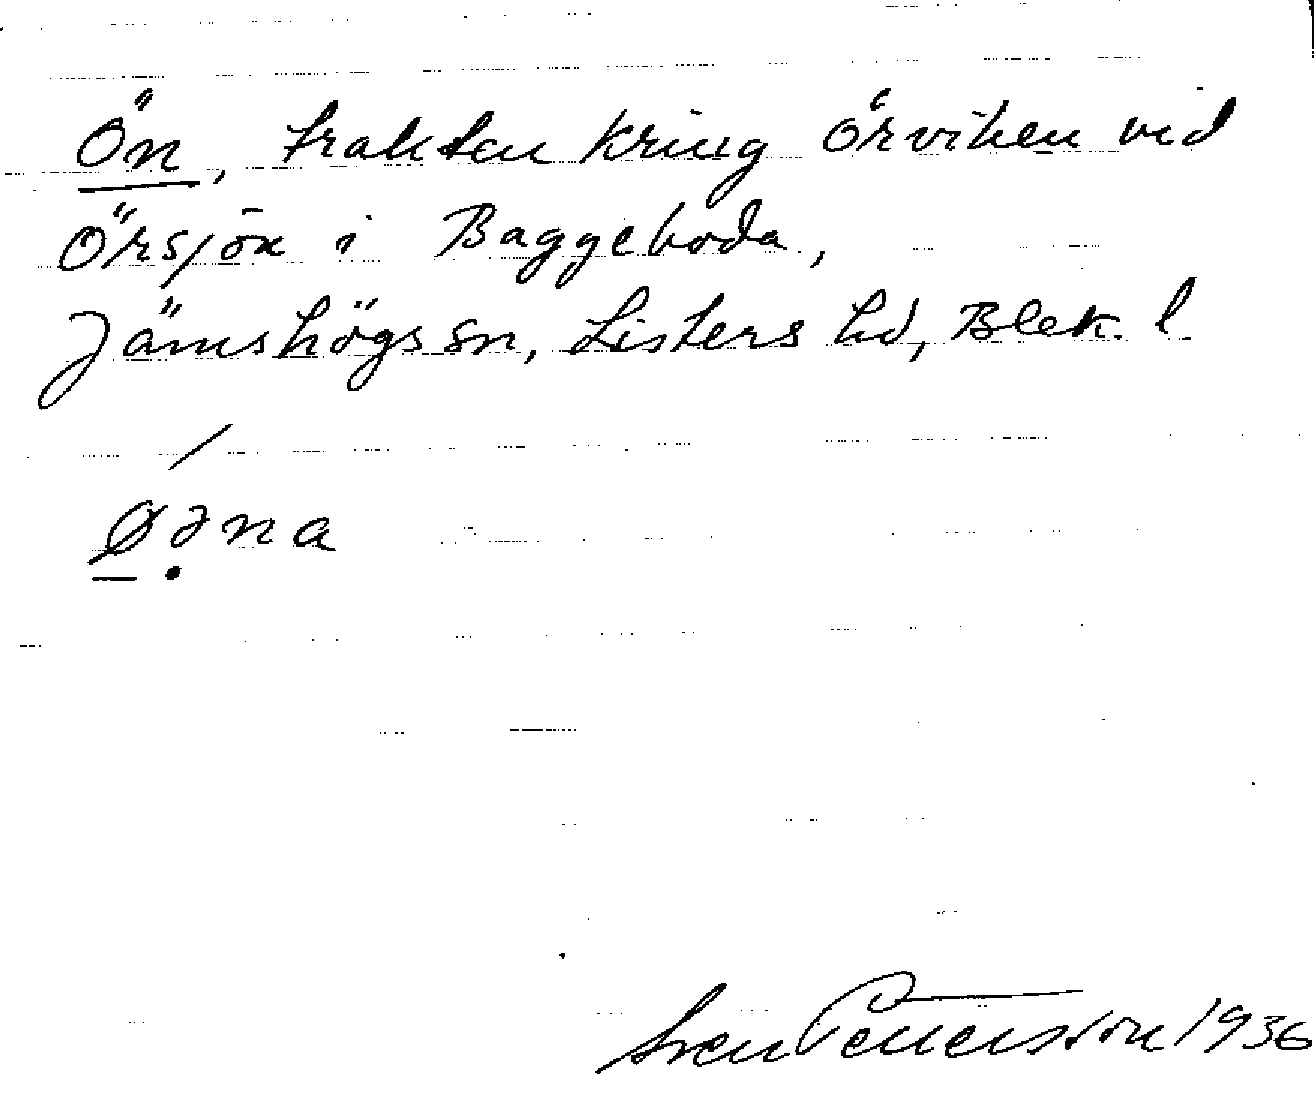 Ön, trakten kring Örviken vid
Örsjön i Baggeboda,
Jämshögs sn, Listers hd, Blek. l.
/
Øəna
Sven Pettersson 1936